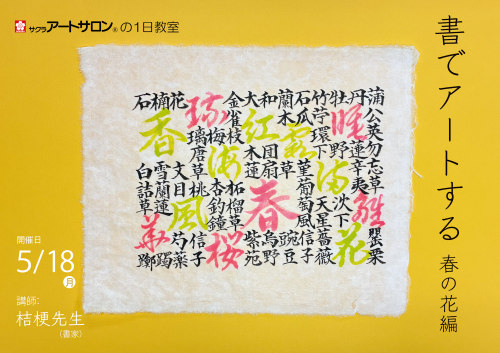 サクラアートサロン®の1日教室
書でアートする 春の花編
蒲公英勿忘草雛罌粟
牡丹睡蓮辛夷
天星薔薇
葡萄風信子
豌豆
蘭
大和
紅
団扇
木蓮
春
烏野
紫苑
金雀枝
梅
海
柘榴草
瑠璃唐草桃
杏
釣鐘
桜
石楠花
香
文目
風信子
芍薬
雪蘭蓮
白詰草
華
躑躅
開催日
5/18月
講師:
桔梗先生
(書家)